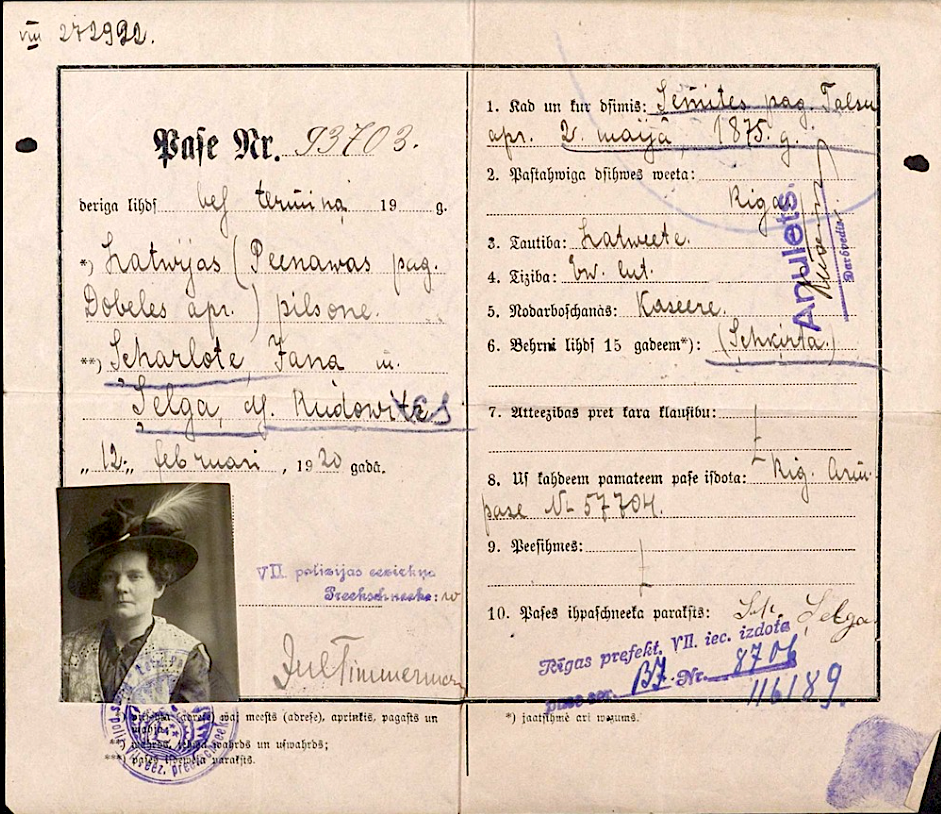 VIII 272992.
Paſe Nr. 93703.
deriga lihdſ beſ termiņa 19 g.
*) Latwijas (Peenawas pag.
Dobeles apr.) pilsone.
**) Scharlote, Jāņa m.
Selga, dſ. Rudowitz
"12." februari, 1920 gadā.
VII. polizijas eezirkņa
Preekschneeks:
Jul Timmerman
waj meests (adrese), aprinkis, pagasts un
wahrds un uſwahrds;
***) paſes iſdeweja paraksts.
1. Kad un kur dſimis: Semites pag. Talsu
apr. 2. maijā, 1875. g.
2. Paſtahwiga dſihwes weeta:
Rigā
3. Tautiba: Latweete.
4. Tiziba: Ew. lut.
5. Nodarboſchanās: Kaseere.
6. Behrni lihdſ 15 gadeem*): (Schķirta)
7. Atteezibas pret kara klauſibu:
8. Uſ kahdeem pamateem paſe iſdota: Rig.
pase № 57704.
9. Peeſihmes:
10. Paſes ihpaſchneeka paraksts: Selga.
Anulets.
Darbvedis
Rīgas prefekt. VII. iec. izdota
pase ser. BJ. Nr. 8706
116189.
*) jaatſihmē arī wezums.